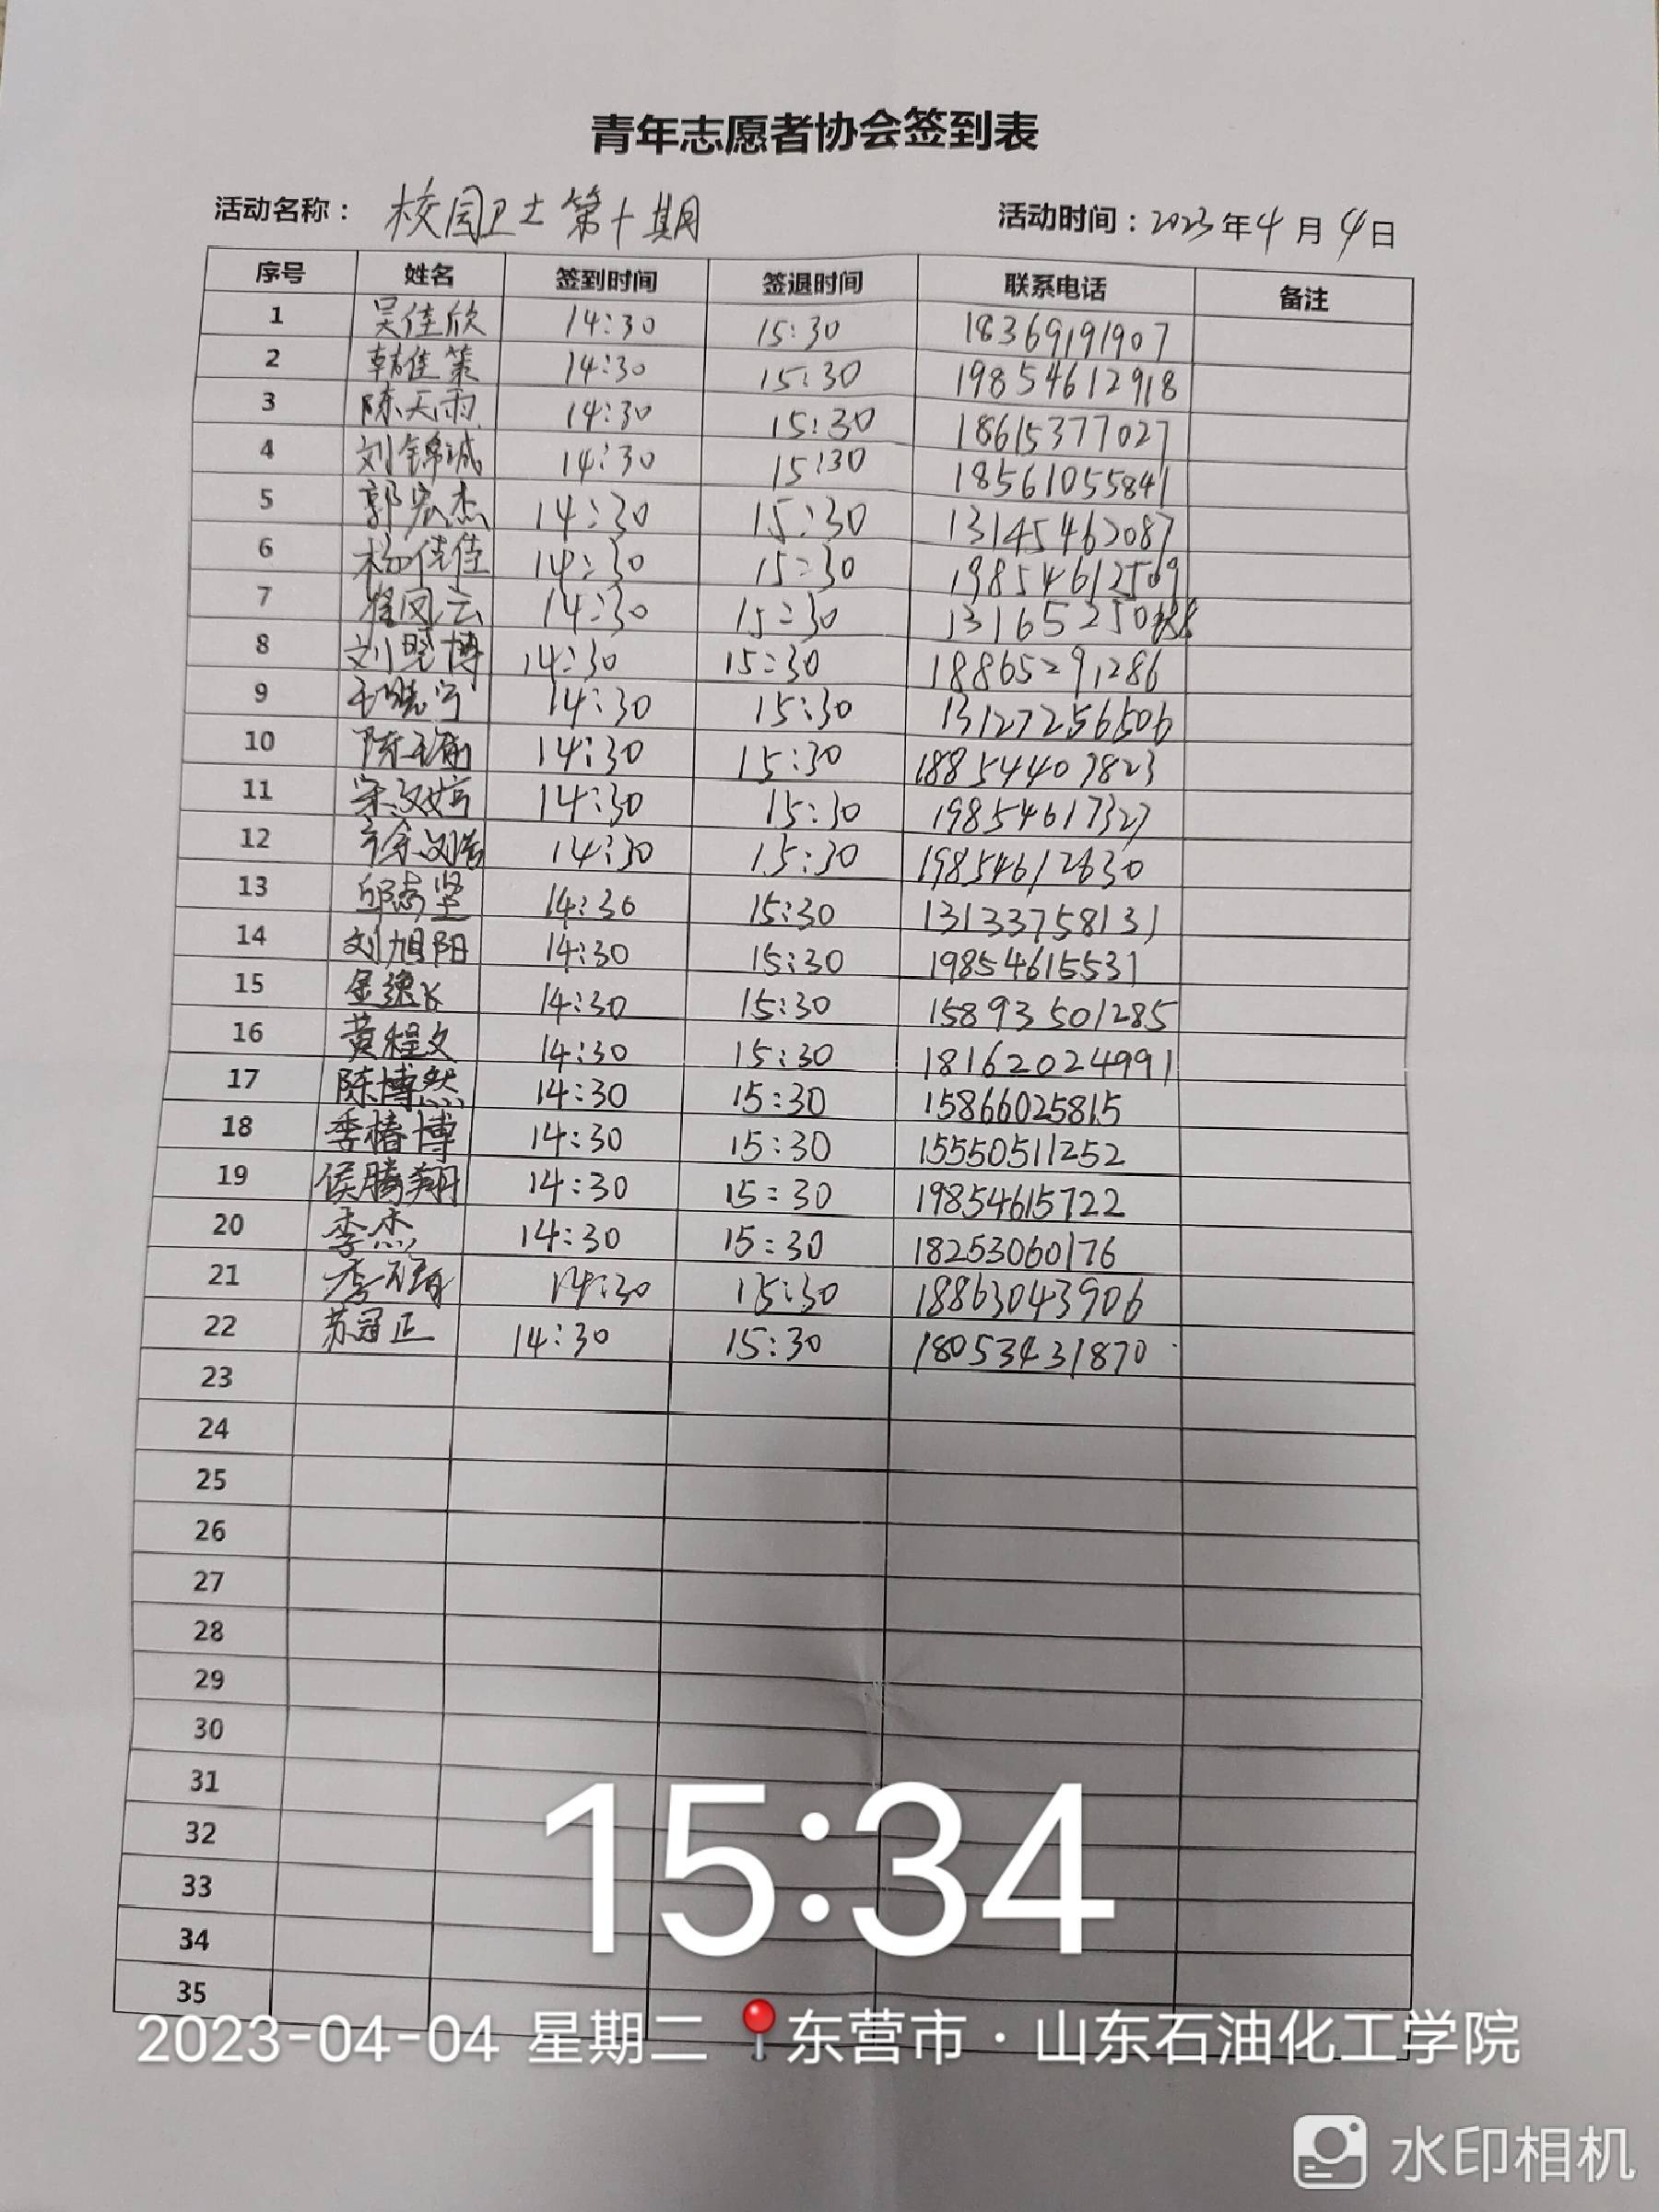 青年志愿者协会签到表
活动名称： 校园卫士第十期 活动时间：2023年4月4日
序号 姓名 签到时间 签退时间 联系电话 备注
1 吴佳欣 14:30 15:30 18369191907
2 韩佳策 14:30 15:30 19854612918
3 陈天雨 14:30 15:30 18615377027
4 刘锦诚 14:30 15:30 18561055841
5 郭宏杰 14:30 15:30 13145462087
6 杨佳佳 14:30 15:30 19854612509
7 凤云 14:30 15:30
8 刘晓博 14:30 15:30 18865291286
9 王晓宁 14:30 15:30 13127256506
10 陈 14:30 15:30
11 宋汶婷 14:30 15:30 19854617327
12 14:30 15:30 19854612630
13 邱志坚 14:30 15:30 13133758131
14 刘旭阳 14:30 15:30 19854615531
15 14:30 15:30 15893501285
16 黄程文 14:30 15:30 18162024991
17 陈博然 14:30 15:30 15866025815
18 季椿博 14:30 15:30 15550511252
19 侯腾翔 14:30 15:30 19854615722
20 李杰 14:30 15:30 18253060176
21 14:30 15:30 18863043906
22 苏冠正 14:30 15:30 18053431870
23
24
25
26
27
28
29
30
31
32
33
34
35
15:34
2023-04-04 星期二 东营市·山东石油化工学院
水印相机